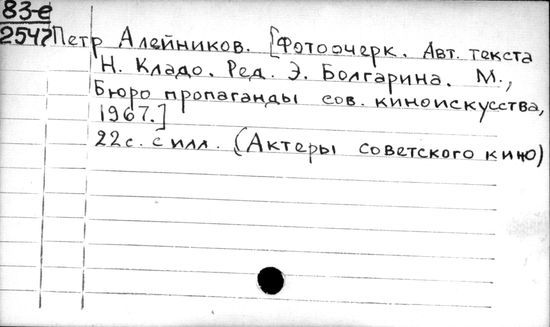 83-е
2547 Петр Алейников. [Фотоочерк. Авт. текста
Н. Кладо. Ред. Э. Болгарина. М.,
Бюро пропаганды сов. киноискусства,
1967.]
22 с. с илл. (Актеры советского кино)